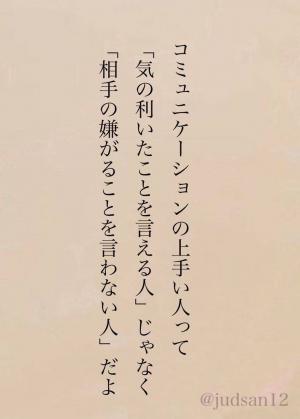 コミュニケーションの上手い人って
「気の利いたことを言える人」じゃなく
「相手の嫌がることを言わない人」だよ
@judsan12